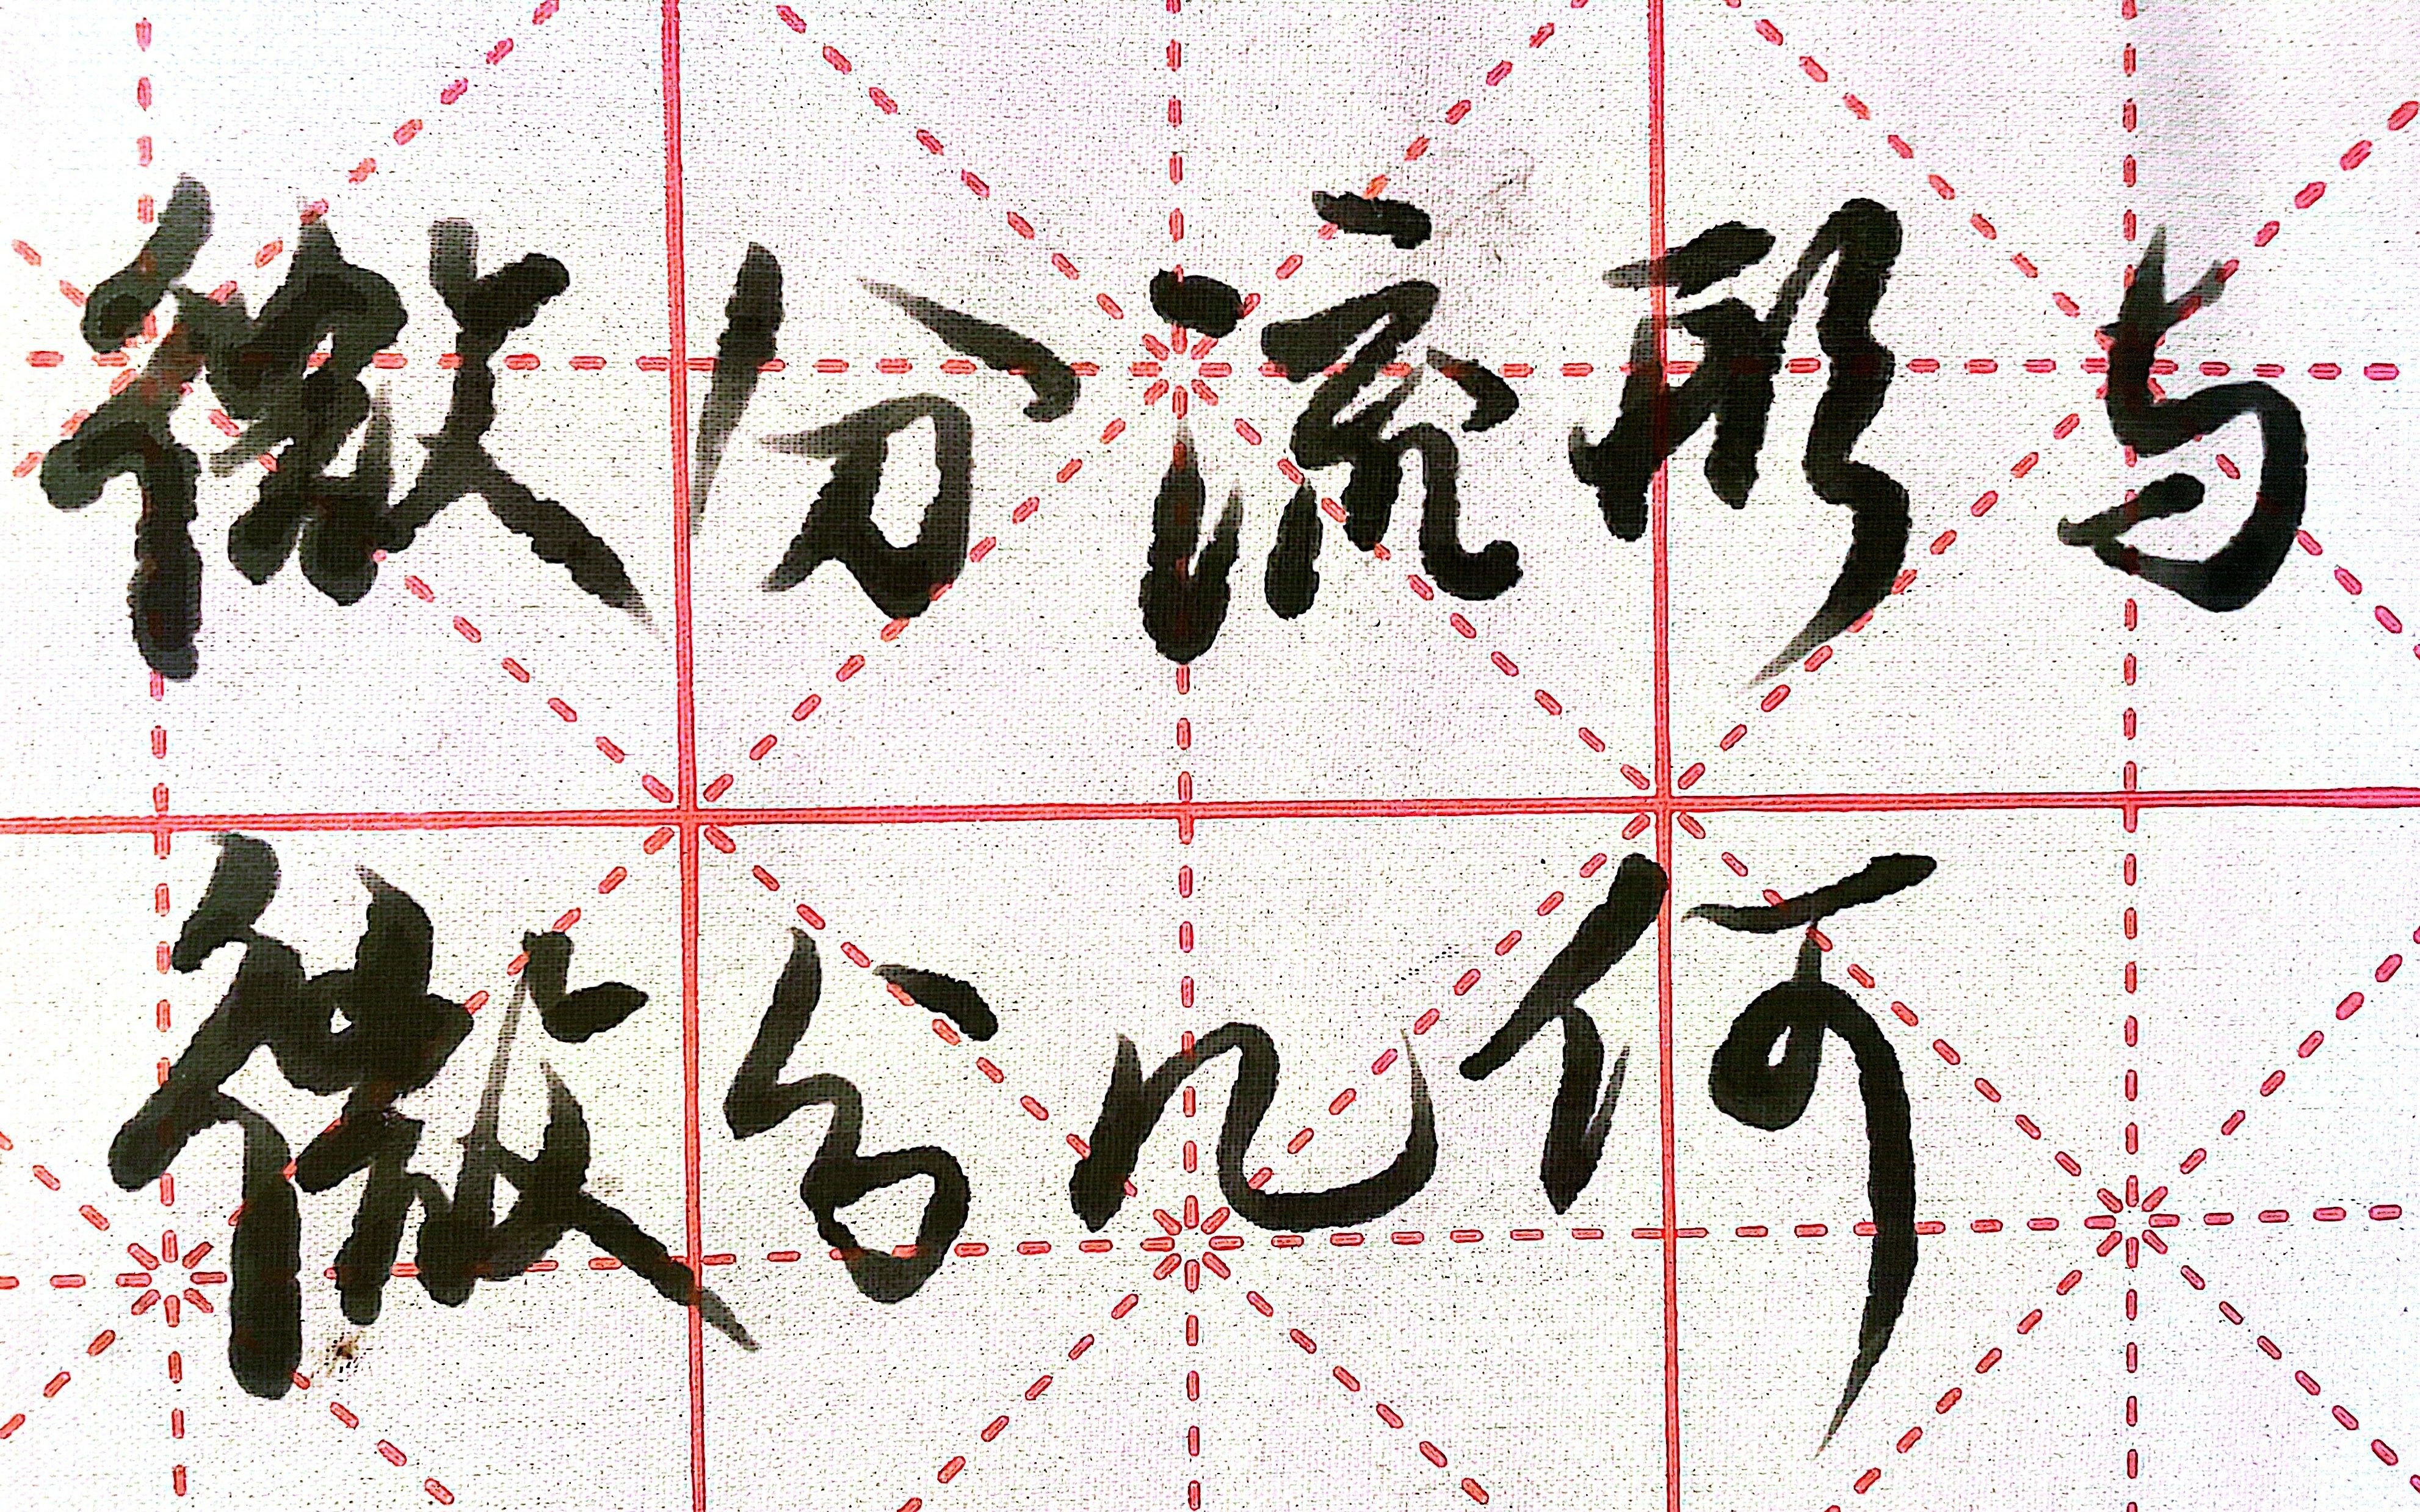 微分流形与
微分几何